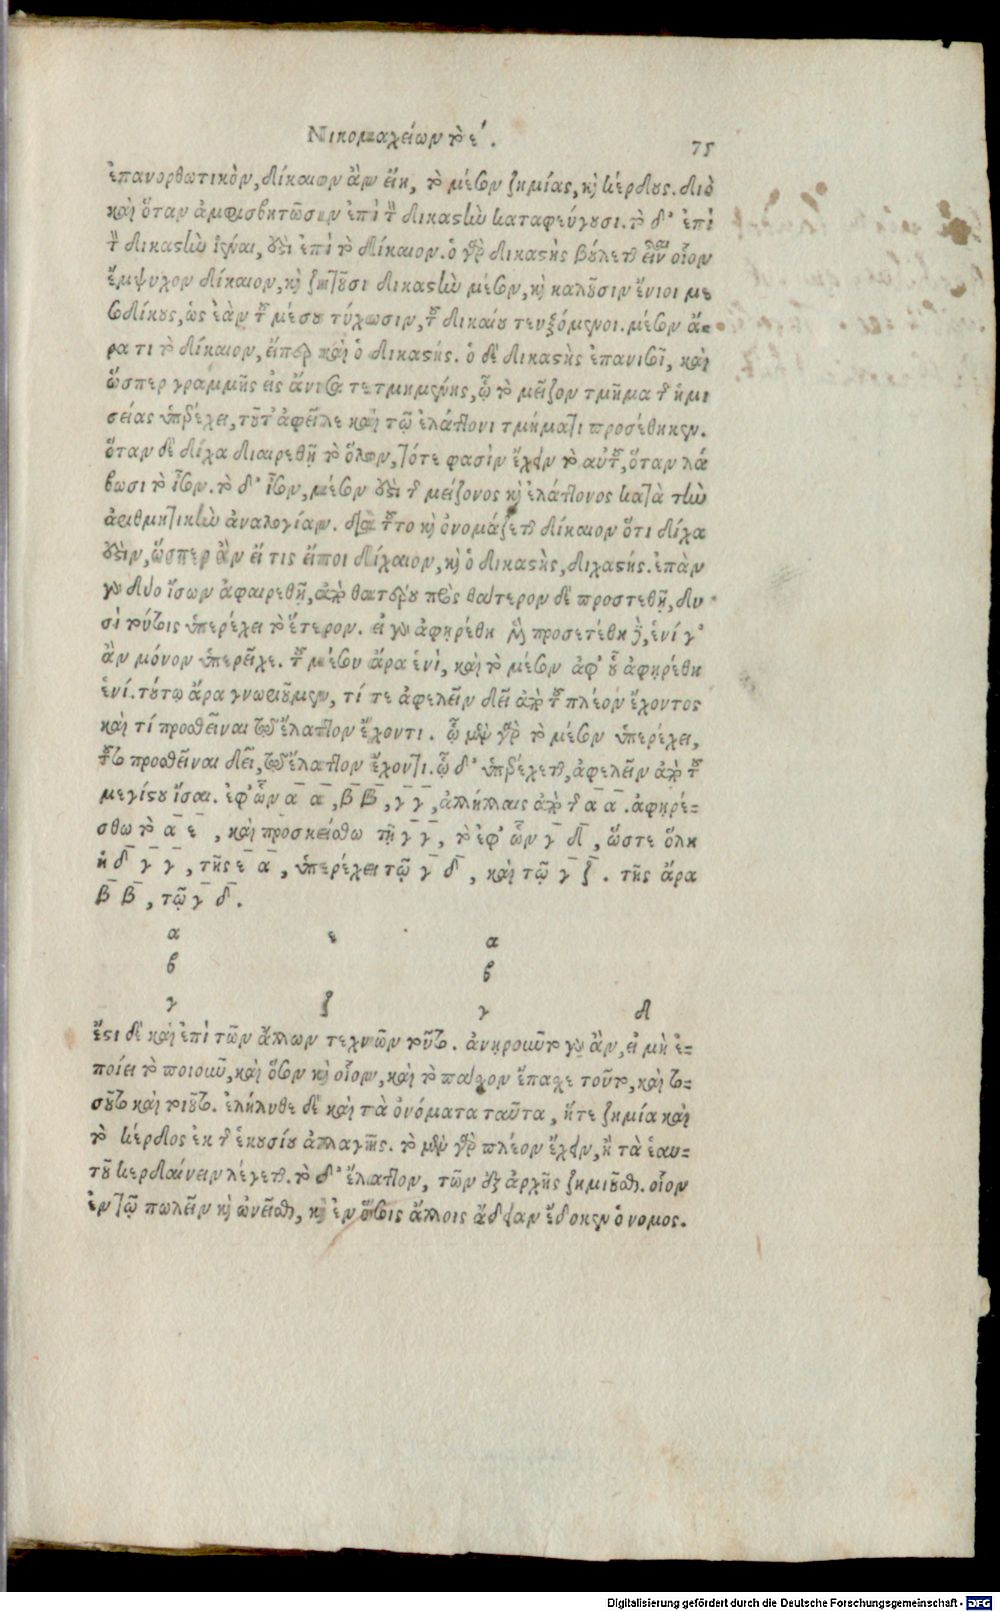 Νικομαχείων τὸ ε΄.
75
ἐπανορθωτικὸν, δίκαιον ἂν εἴη, τὸ μέσον ζημίας, κὶ κέρδους. διὸ
καὶ ὅταν ἀμφισβητῶσιν ἐπὶ τὸν δικαστὴν καταφεύγουσι. τὸ δ' ἐπὶ
τὸν δικαστὴν ἰέναι, ἐστὶν ἐπὶ τὸ δίκαιον. ὁ γὰρ δικαστὴς βούλεται εἶναι οἷον
ἔμψυχον δίκαιον, κὶ ζητοῦσι δικαστὴν μέσον, κὶ καλοῦσιν ἔνιοι με
σιδίκους, ὡς ἐὰν τοῦ μέσου τύχωσιν, τοῦ δικαίου τευξόμενοι. μέσον ἄ-
ρα τι τὸ δίκαιον, εἴπερ καὶ ὁ δικαστής. ὁ δὲ δικαστὴς ἐπανισοῖ, καὶ
ὥσπερ γραμμῆς εἰς ἄνισα τετμημένης, ᾧ τὸ μεῖζον τμῆμα τῆς ἡμι
σείας ὑπερέχει, τοῦτ' ἀφεῖλε καὶ τῷ ἐλάττονι τμήματι προσέθηκεν.
ὅταν δὲ δίχα διαιρεθῇ τὸ ὅλον, τότε φασὶν ἔχειν τὸ αὑτοῦ, ὅταν λά
βωσι τὸ ἴσον. τὸ δ' ἴσον, μέσον ἐστὶ τῆς μείζονος κὶ ἐλάττονος κατὰ τὴν
ἀριθμητικὴν ἀναλογίαν. διὰ τοῦτο κὶ ὀνομάζεται δίκαιον ὅτι δίχα
ἐστὶν, ὥσπερ ἂν εἴ τις εἴποι δίχαιον, κὶ ὁ δικαστὴς, διχαστής. ἐπὰν
γὰρ δύο ἴσων ἀφαιρεθῇ, ἀπὸ θατέρου πρὸς θάτερον δὲ προστεθῇ, δυ
σὶ τούτοις ὑπερέχει τὸ ἕτερον. εἰ γὰρ ἀφῃρέθη μὴ προσετέθη δὲ, ἑνί γ'
ἂν μόνον ὑπερεῖχε. τοῦ μέσου ἄρα ἑνὶ, καὶ τὸ μέσον ἀφ' οὗ ἀφῃρέθη
ἑνί. τούτῳ ἄρα γνωριοῦμεν, τί τε ἀφελεῖν δεῖ ἀπὸ τοῦ πλέον ἔχοντος
καὶ τί προσθεῖναι τῷ ἔλαττον ἔχοντι. ᾧ μὲν γὰρ τὸ μέσον ὑπερέχει,
τοῦτο προσθεῖναι δεῖ, τῷ ἔλαττον ἔχοντι. ᾧ δ' ὑπερέχεται, ἀφελεῖν ἀπὸ τοῦ
μεγίστου ἴσαι. ἐφ' ὧν α̅ α̅, β̅ β̅, γ̅ γ̅, ἀλλήλαις ἀπὸ τῆς α̅ α̅. ἀφῃρέ-
σθω τὸ α̅ ε̅, καὶ προσκείσθω τῇ γ̅ γ̅, τὸ ἐφ' ὧν γ̅ δ̅, ὥστε ὅλη
ἡ δ̅ γ̅ γ̅, τῆς ε̅ α̅, ὑπερέχει τῷ γ̅ δ̅, καὶ τῷ γ̅ ζ̅. τῆς ἄρα
β̅ β̅, τῷ γ̅ δ̅.
α ε α
β β
γ ζ γ δ
ἔστι δὲ καὶ ἐπὶ τῶν ἄλλων τεχνῶν τοῦτο. ἀνῃροῦντο γὰρ ἂν, εἰ μὴ ἐ-
ποίει τὸ ποιοῦν, καὶ ὅσον κὶ οἷον, καὶ τὸ πάσχον ἔπασχε τοῦτο, καὶ το-
σοῦτο καὶ τοιοῦτο. ἐλήλυθε δὲ καὶ τὰ ὀνόματα ταῦτα, ἥτε ζημία καὶ
τὸ κέρδος ἐκ τῆς ἑκουσίου ἀλλαγῆς. τὸ μὲν γὰρ πλέον ἔχειν, ἢ τὰ ἑαυ-
τοῦ κερδαίνειν λέγεται. τὸ δ' ἔλαττον, τῶν ἐξ ἀρχῆς ζημιοῦσθαι. οἷον
ἐν τῷ πωλεῖν κὶ ὠνεῖσθαι, κὶ ἐν ὅσοις ἄλλοις ἄδειαν ἔδωκεν ὁ νομος.
Digitalisierung gefördert durch die Deutsche Forschungsgemeinschaft - DFG